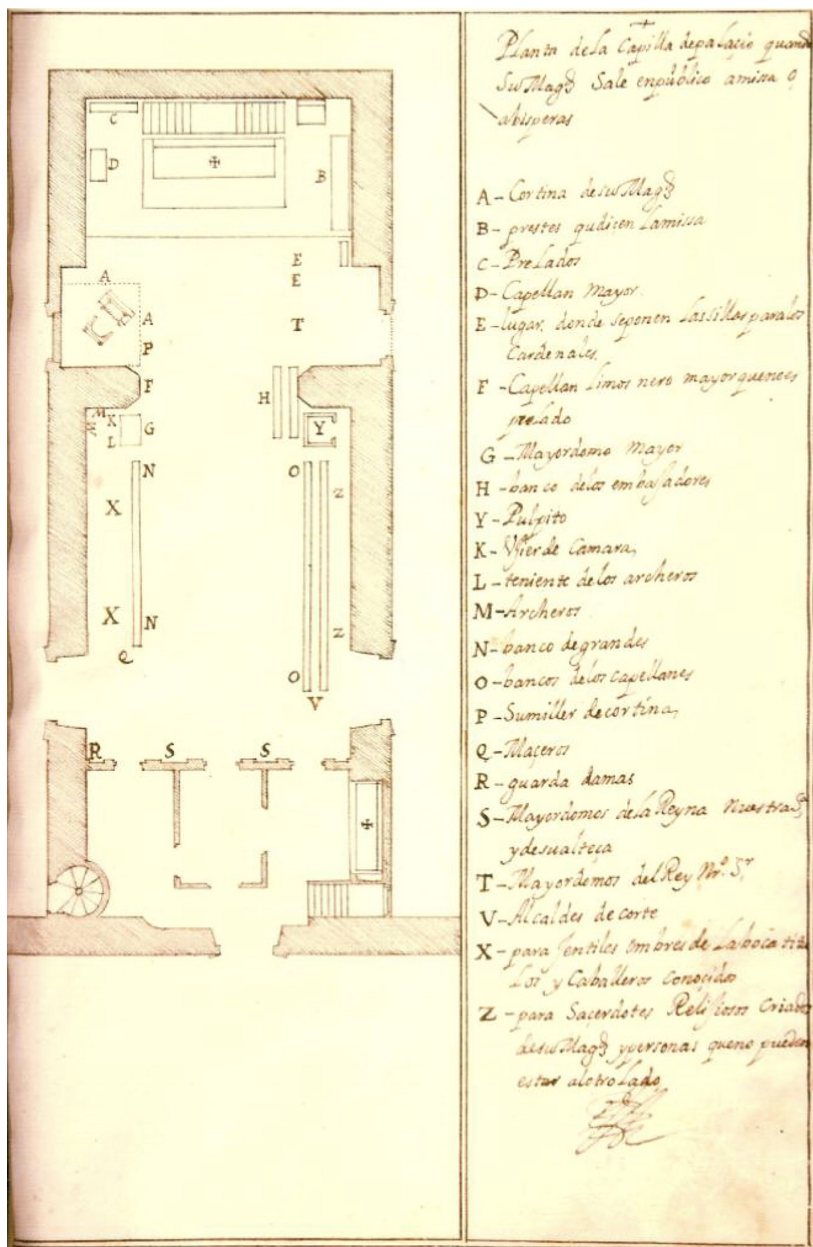 Planta de la Capilla de palacio quando
Su Magd Sale en público a missa o
a bísperas
A - Cortina de su Magd
B - prestes q dicen la missa
C - Prelados
D - Capellan Mayor
E - lugar donde se ponen las sillas para los
Cardenales.
F - Capellan Limosnero mayor que no es
prelado
G - Mayordomo Mayor
H - banco de los embaxadores
Y - Pulpito
K - Vjier de Camara
L - teniente de los archeros
M - Archeros
N - banco de grandes
O - bancos de los capellanes
P - Sumiller de cortina
Q - Maçeros
R - guarda damas
S - Mayordomos de la Reyna Nuestra Sª
y de su alteça
T - Mayordomos del Rey Nro. Sr
V - Alcaldes de corte
X - para Jentiles ombres de la boca titu
los y Caballeros conoçidos
Z - para Saçerdotes Relijiosos Criados
de su Magd y personas que no pueden
estar al otro lado
C
D
B
E
E
A
A
T
P
F
H
M
M
K
G
L
Y
N
O
Z
X
X
N
Z
Q
O
V
R S S